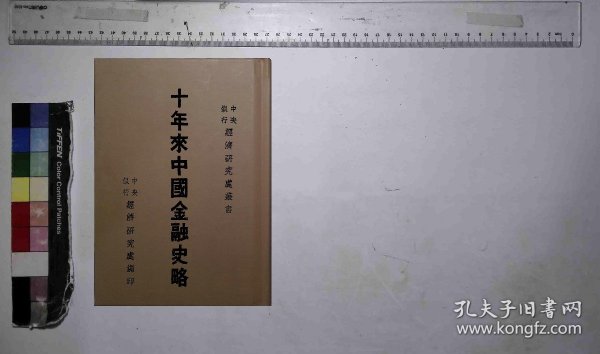 中央
銀行
經濟研究處叢書
十年來中國金融史略
中央
銀行
經濟研究處編印
TIFFEN Color Control Patches
孔夫子旧书网
www.kongfz.com